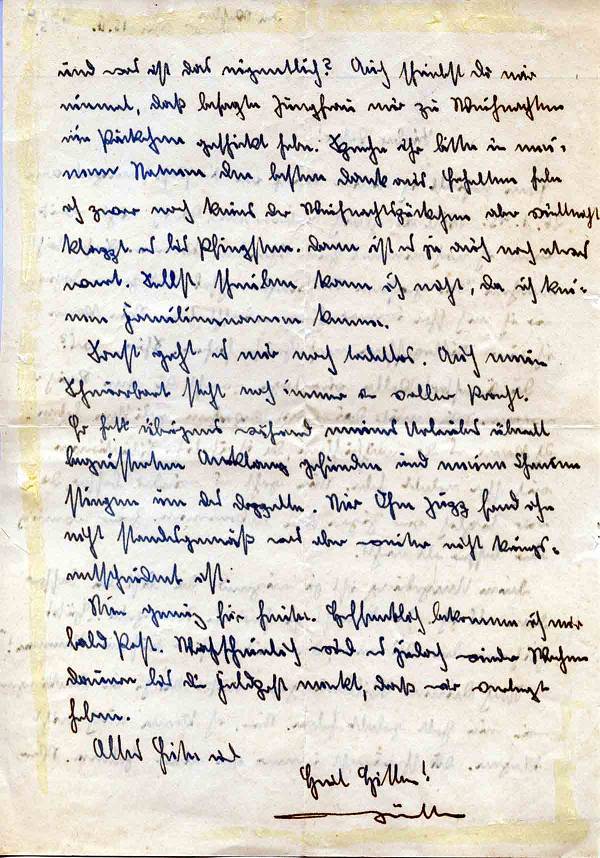 und was ist das eigentlich? Auch schriebst du mir
einmal, daß besagte Jungfrau mir zu Weihnachten
ein Päckchen geschickt habe. Sprich ihr bitte in mei-
nem Namen den besten Dank aus. Erhalten habe
ich zwar noch keines der Weihnachtspäckchen aber vielleicht
klappt es bis Pfingsten. Dann ist es ja auch noch etwas
wert. Selbst schreiben kann ich nicht, da ich kei-
nen Familiennamen kenne.
Sonst geht es mir noch tadellos. Auch mein
Schnurrbart steht noch immer in voller Pracht.
Er hat übrigens während meines Urlaubes überall
begeisterten Anklang gefunden und meine Chancen
stiegen um das doppelte. Nur Ohm Jupp fand ihn
nicht standesgemäß was aber weiter nicht kriegs-
entscheidend ist.
Nun genug für heute. Hoffentlich bekomme ich nur
bald Post. Wahrscheinlich wird es jedoch wieder Wochen
dauern bis die Feldpost merkt, daß wir verlegt
haben.
Alles Gute und
Heil Hitler!